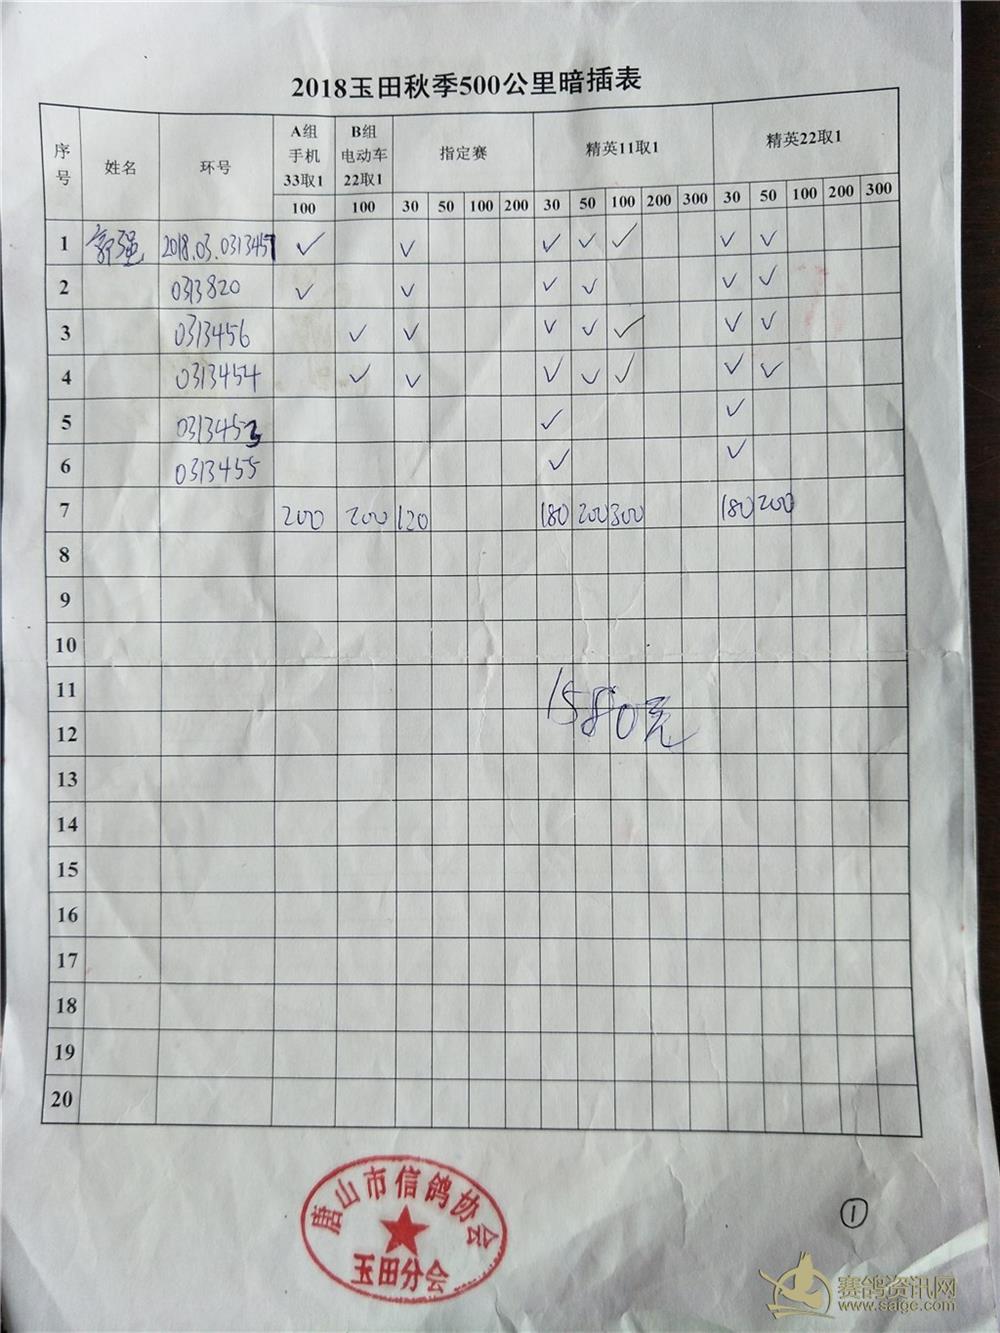 2018玉田秋季500公里暗插表
序号 姓名 环号 A组手机33取1 B组电动车22取1 指定赛 精英11取1 精英22取1
100 100 30 50 100 200 30 50 100 200 300 30 50 100 200 300
1 郭强 2018.03.0313457 ✓ ✓ ✓ ✓ ✓ ✓ ✓
2 0313820 ✓ ✓ ✓ ✓ ✓ ✓
3 0313456 ✓ ✓ ✓ ✓ ✓ ✓ ✓
4 0313454 ✓ ✓ ✓ ✓ ✓ ✓ ✓
5 0313453 ✓ ✓
6 0313455 ✓ ✓
7 200 200 120 180 200 300 180 200
8
9
10
11
1580元
12
13
14
15
16
17
18
19
20
唐山市信鸽协会
玉田分会
①
赛鸽资讯网
www.saigc.com